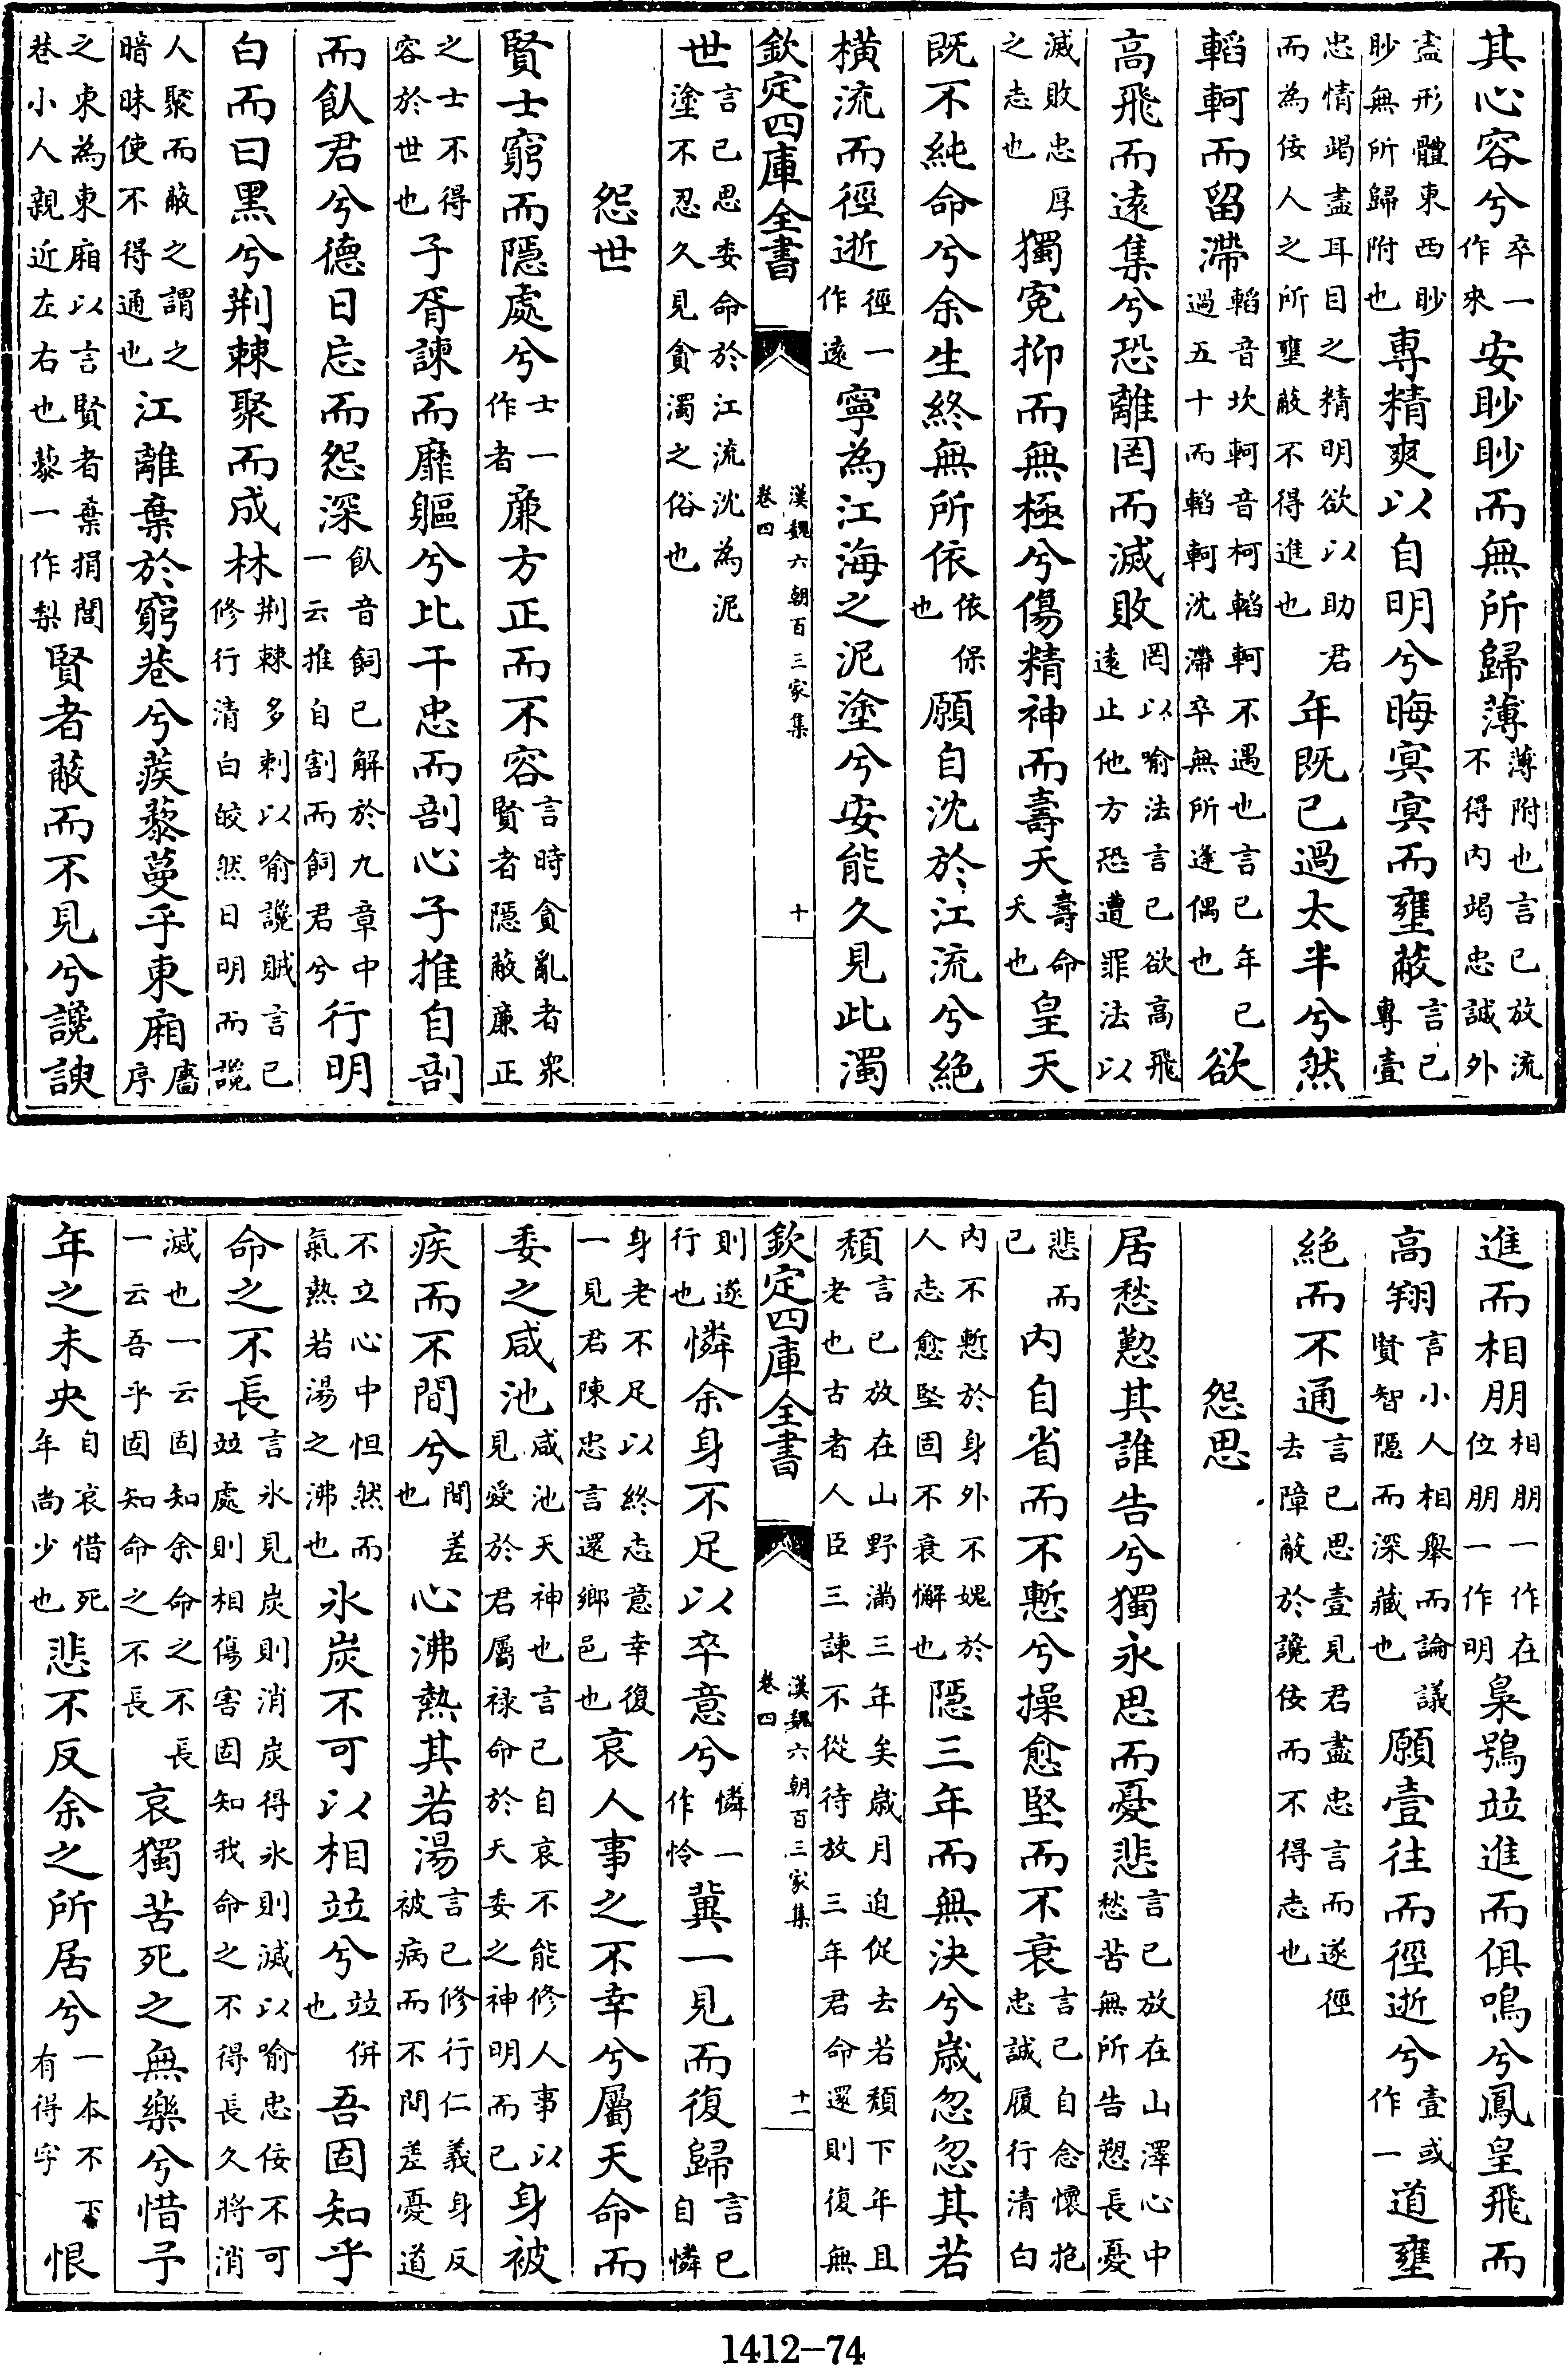 其心容兮卒一作來安眇眇而無所歸薄薄附也言已放流不得內竭忠誠外
盡形體東西眇眇無所歸附也專精爽以自明兮晦冥冥而壅蔽言已專壹
忠情竭盡耳目之精明欲以助君而為佞人之所壅蔽不得進也年既已過太半兮然
轁軻而留滯轁音坎軻音柯轁軻不遇也言已年已過五十而轁軻沈滯卒無所逢偶也欲
高飛而遠集兮恐離罔而滅敗罔以喻法言已欲高飛遠止他方恐遭罪法以
滅敗忠厚之志也獨冤抑而無極兮傷精神而壽夭壽命夭也皇天
既不純命兮余生終無所依依保也願自沈於江流兮絕
橫流而徑逝徑一作遠寧為江海之泥塗兮安能久見此濁
欽定四庫全書 漢魏六朝百三家集 卷四 十
世言已思委命於江流沈為泥塗不忍久見貪濁之俗也
怨世
賢士窮而隱處兮士一作者廉方正而不容言時貪亂者衆賢者隱蔽廉正
之士不得容於世也子胥諫而靡軀兮比干忠而剖心子推自剖
而飤君兮德日忘而怨深飤音飼已解於九章中一云推自割而飼君兮行明
白而曰黑兮荆棘聚而成林荆棘多刺以喻讒賊言已修行清白皎然日明而讒
人聚而蔽之謂之暗昧使不得通也江離棄於窮巷兮蒺藜蔓乎東廂廧序
之東為東廂以言賢者棄捐閭巷小人親近左右也藜一作梨賢者蔽而不見兮讒諛
進而相朋相朋一作在位朋一作明梟鴞竝進而俱鳴兮鳳皇飛而
高翔言小人相舉而論議賢智隱而深藏也願壹往而徑逝兮壹或作一道壅
絕而不通言已思壹見君盡忠言而遂徑去障蔽於讒佞而不得志也
怨思
居愁懃其誰告兮獨永思而憂悲言已放在山澤心中愁苦無所告愬長憂
悲而已內自省而不慙兮操愈堅而不衰言已自念懷抱忠誠履行清白
內不慙於身外不媿於人志愈堅固不衰懈也隱三年而無決兮歲忽忽其若
頹言已放在山野滿三年矣歲月迫促去若頹下年且老也古者人臣三諫不從待放三年君命還則復無
欽定四庫全書 漢魏六朝百三家集 卷四 十一
則遂行也憐余身不足以卒意兮憐一作怜冀一見而復歸言已自憐
身老不足以終志意幸復一見君陳忠言還鄉邑也哀人事之不幸兮屬天命而
委之咸池咸池天神也言已自哀不能修人事以見愛於君屬祿命於天委之神明而已身被
疾而不間兮間差也心沸熱其若湯言已修行仁義身反被病而不間差憂道
不立心中怛然而氣熱若湯之沸也氷炭不可以相竝兮竝併也吾固知乎
命之不長言氷見炭則消炭得氷則滅以喻忠佞不可竝處則相傷害固知我命之不得長久將消
滅也一云固知余命之不長一云吾乎固知命之不長哀獨苦死之無樂兮惜予
年之未央自哀惜死年尚少也悲不反余之所居兮一本不下有得字恨
1412–74